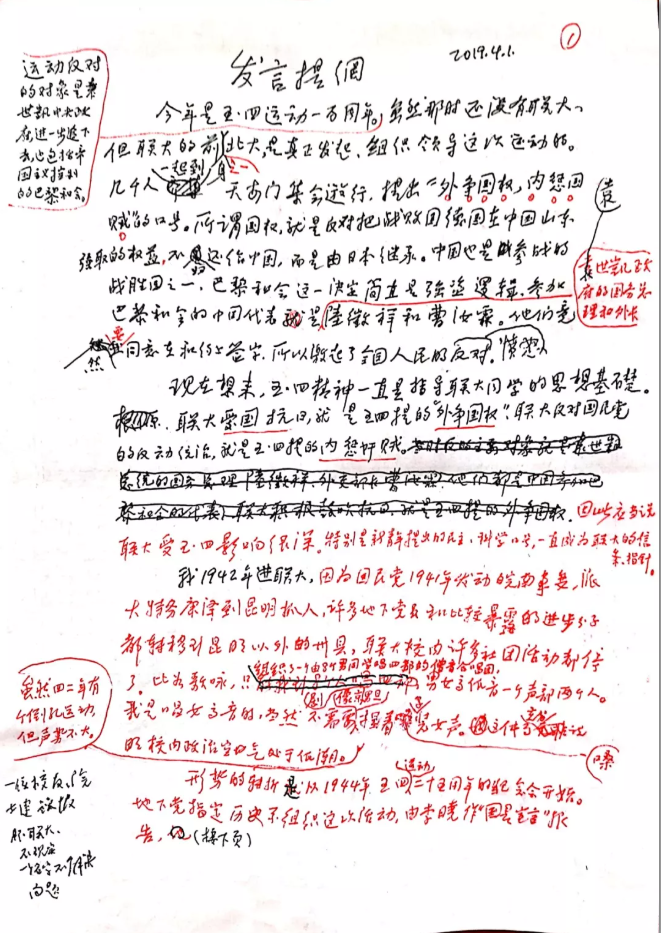 ①
2019.4.1.
发言提纲
运动反对
的对象是袁
世凯中央政
府,进一步追下
去,也包括帝
国主义控制
的巴黎和会。
今年是五·四运动一百周年。虽然那时还没有联大、
但联大的前身之一北大,是真正发起、组织、领导这次运动的。
几千人一起到天安门集会游行,提出“外争国权,内惩国
贼”的口号。所谓国权,就是反对把战败国德国在中国山东
强取的权益,不归还给中国,而是由日本继承。中国也是参战的
战胜国之一,巴黎和会这一决定简直是强盗逻辑,参加
巴黎和会的中国代表就是陆徵祥和曹汝霖。他们竟
然要同意在和约上签字,所以激起了全国人民的反对、愤怒。
袁
袁世凯政
府的国务总
理和外长
现在想来,五·四精神一直是指导联大同学的思想基础。
联大爱国抗日,就是五四提的“外争国权”联大反对国民党
的反动统治,就是五·四提的内惩奸贼。
因此应当说
联大受五·四影响很深。特别是新青提出的民主、科学口号,一直成为联大的信
条、指针。
我1942年进联大,因为国民党1941年发动皖南事变,派
大特务康泽到昆明抓人,许多地下党员和比较暴露的进步分子
都转移到昆明以外的州县,联大校内许多社团活动都停
了。比如歌咏,只组织了一个由8个男同学唱四部的
男女高低音一个声部两个人。
我是唱女高音的,当然不需要捏着嗓
男女声。这件事
的校内政治空气处于低潮。
嗓
虽然四二年有
个倒孔运动,
但声势不大。
形势的转折是从1944年五四运动二十五周年的纪念会开始。
地下党指定历史系组织这次活动,由李晓作“国是宣言”报
告,(接下页)
不现实
问题